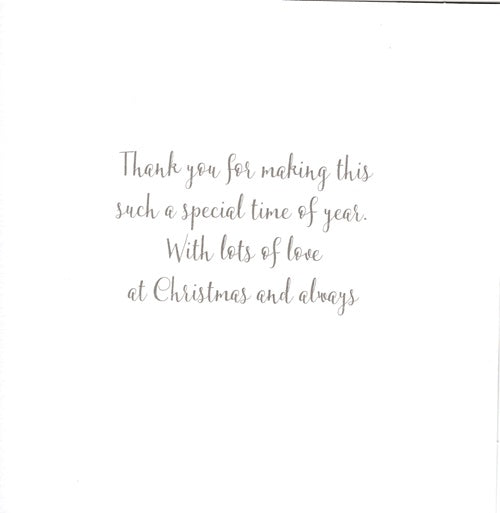 Thank you for making this
such a special time of year.
With lots of love
at Christmas and always